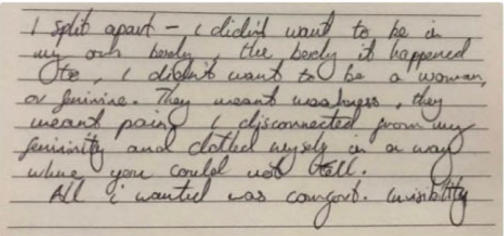 I split apart – I didn't want to be in
my own body, the body it happened
to, I didn't want to be a woman,
or feminine. They meant weakness, they
meant pain. I disconnected from my
femininity and clothed myself in a way
where you could not tell.
All I wanted was comfort. Invisibility